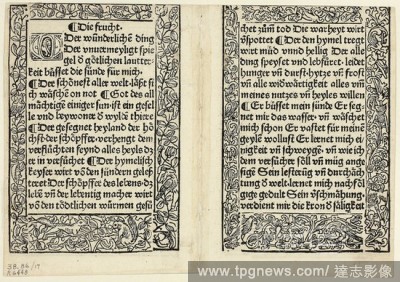 ¶ Die frucht.
Der wünderliche ding
Der vnuermeyligt spie
gel d götlichen lautter-
keit büsset die sünde für mich.
¶ Der schönest aller welt-läst si
ch wäsche on not ¶ Got des all
mächtige einiger sun-ist ein gesel
le vnd beywoner d wylde thiere
¶ Der gesegnet heyland der hö
chst-der schöpffer-verhengt dem
verflüchten feynd alles heyls dz
er in versüchet ¶ Der hymelisch
keyser wirt vō den sündern gelest
teret Der schöpffer des lebens-dz
lebē-vn der lebentig macher wirt
vō den tödtlichen würmen gesü
chet zum tod Die warheyt wirt
verspottet ¶ Der den hymel tregt
wirt müd vnd hellig Der alle
ding speyset vnd
hunger vn durst-hytze vn frost
vn alle widerwärtigkeit alles vm
meines nutzes vn heyles willen
¶ Er büsset mein sünde Er seg
net mir das wasser-vn wäschet
mich schon Er vastet für meine
geyle wollust Er lernet mich ei
nigkeit vn schweyge-vn wie ich
dem versücher söll vn müg ange
sigē Sein lesterūg vn durchäch
tung d welt-lernet mich nachföl
gige gedult Sein verschmähung
verdient mir die kron d säligkeit
3B.86/17
www.tpgnews.com/ 達志影像